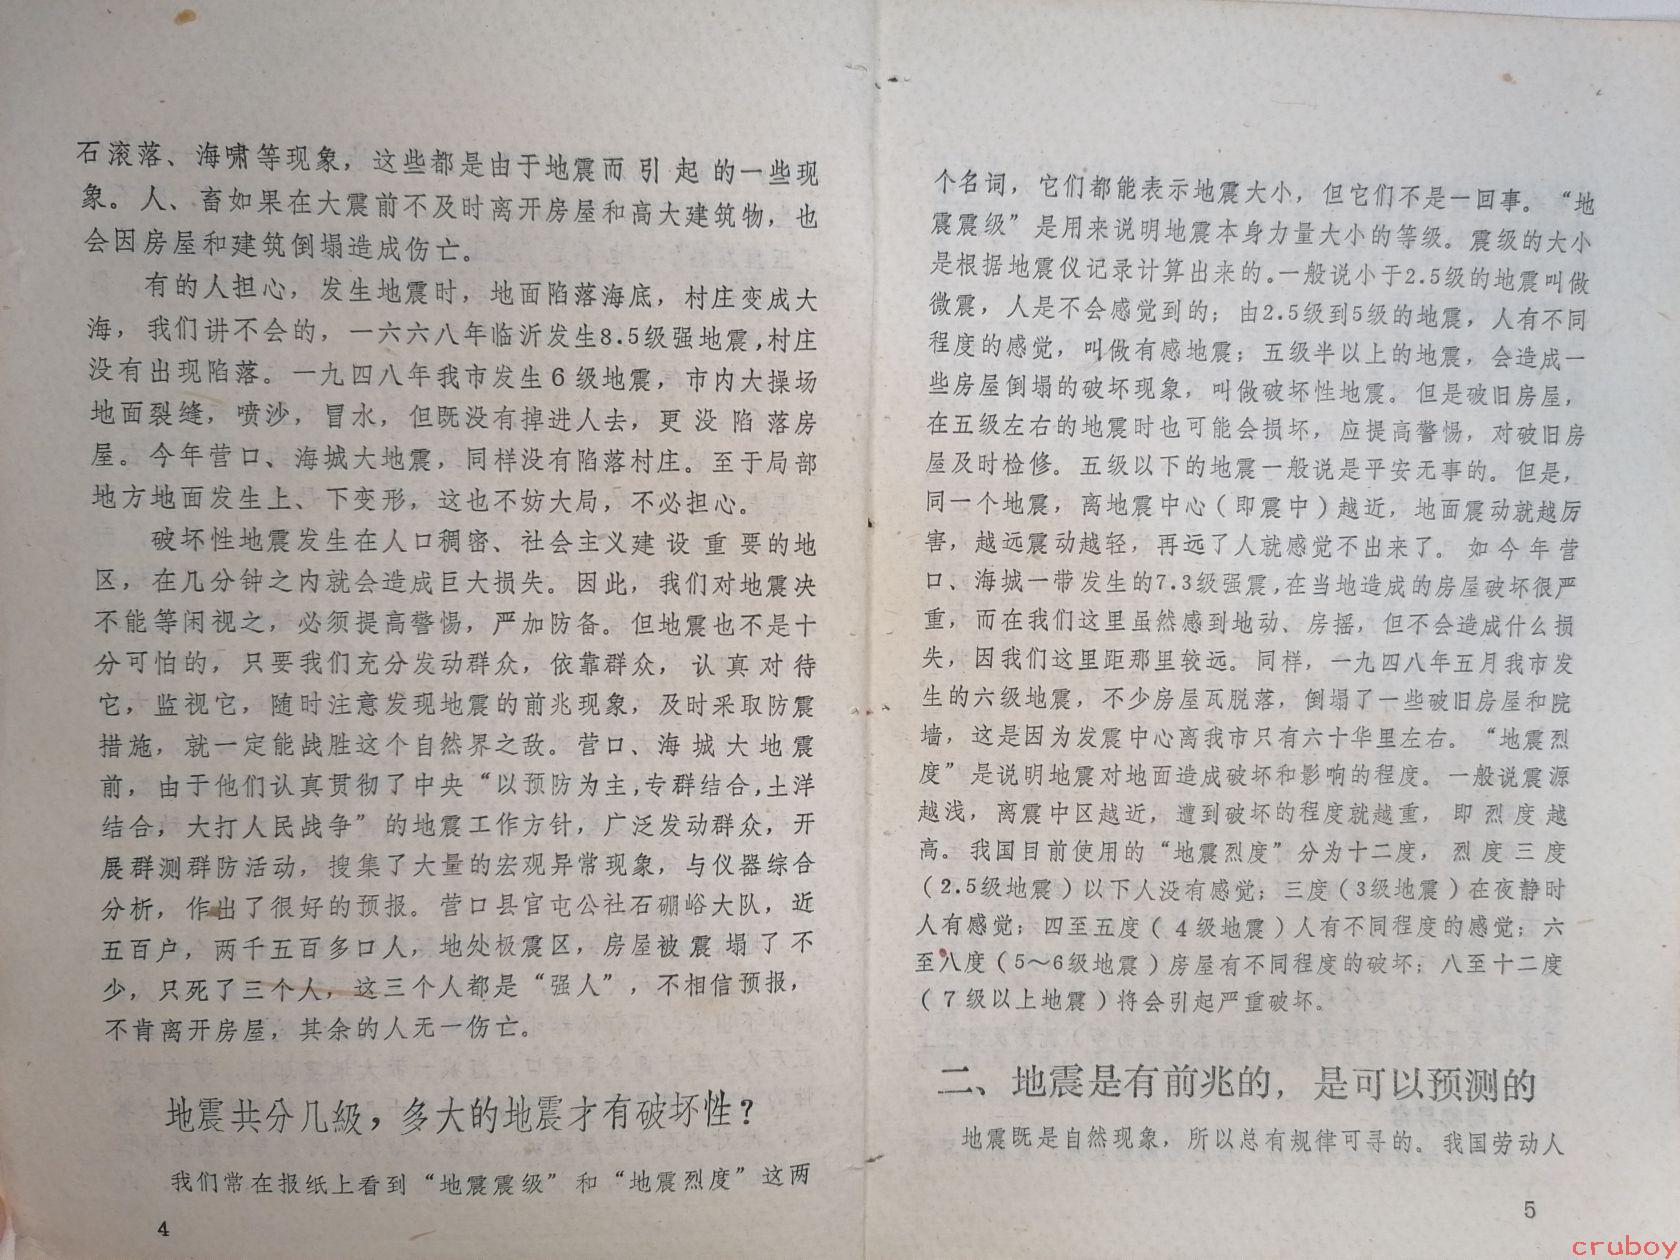 石滚落、海啸等现象，这些都是由于地震而引起的一些现
象。人、畜如果在大震前不及时离开房屋和高大建筑物，也
会因房屋和建筑倒塌造成伤亡。
有的人担心，发生地震时，地面陷落海底，村庄变成大
海，我们讲不会的，一六六八年临沂发生8.5级强地震，村庄
没有出现陷落。一九四八年我市发生6级地震，市内大操场
地面裂缝，喷沙，冒水，但既没有掉进人去，更没陷落房
屋。今年营口、海城大地震，同样没有陷落村庄。至于局部
地方地面发生上、下变形，这也不妨大局，不必担心。
破坏性地震发生在人口稠密、社会主义建设重要的地
区，在几分钟之内就会造成巨大损失。因此，我们对地震决
不能等闲视之，必须提高警惕，严加防备。但地震也不是十
分可怕的，只要我们充分发动群众，依靠群众，认真对待
它，监视它，随时注意发现地震的前兆现象，及时采取防震
措施，就一定能战胜这个自然界之敌。营口、海城大地震
前，由于他们认真贯彻了中央“以预防为主，专群结合，土洋
结合，大打人民战争”的地震工作方针，广泛发动群众，开
展群测群防活动，搜集了大量的宏观异常现象，与仪器综合
分析，作出了很好的预报。营口县官屯公社石硼峪大队，近
五百户，两千五百多口人，地处极震区，房屋被震塌了不
少，只死了三个人，这三个人都是“强人”，不相信预报，
不肯离开房屋，其余的人无一伤亡。
地震共分几級，多大的地震才有破坏性？
我们常在报纸上看到“地震震级”和“地震烈度”这两
4
个名词，它们都能表示地震大小，但它们不是一回事。“地
震震级”是用来说明地震本身力量大小的等级。震级的大小
是根据地震仪记录计算出来的。一般说小于2.5级的地震叫做
微震，人是不会感觉到的；由2.5级到5级的地震，人有不同
程度的感觉，叫做有感地震；五级半以上的地震，会造成一
些房屋倒塌的破坏现象，叫做破坏性地震。但是破旧房屋，
在五级左右的地震时也可能会损坏，应提高警惕，对破旧房
屋及时检修。五级以下的地震一般说是平安无事的。但是，
同一个地震，离地震中心（即震中）越近，地面震动就越厉
害，越远震动越轻，再远了人就感觉不出来了。如今年营
口、海城一带发生的7.3级强震，在当地造成的房屋破坏很严
重，而在我们这里虽然感到地动、房摇，但不会造成什么损
失，因我们这里距那里较远。同样，一九四八年五月我市发
生的六级地震，不少房屋瓦脱落，倒塌了一些破旧房屋和院
墙，这是因为发震中心离我市只有六十华里左右。“地震烈
度”是说明地震对地面造成破坏和影响的程度。一般说震源
越浅，离震中区越近，遭到破坏的程度就越重，即烈度越
高。我国目前使用的“地震烈度”分为十二度，烈度三度
（2.5级地震）以下人没有感觉；三度（3级地震）在夜静时
人有感觉；四至五度（4级地震）人有不同程度的感觉；六
至八度（5～6级地震）房屋有不同程度的破坏；八至十二度
（7级以上地震）将会引起严重破坏。
二、地震是有前兆的，是可以预测的
地震既是自然现象，所以总有规律可寻的。我国劳动人
5
cruboy